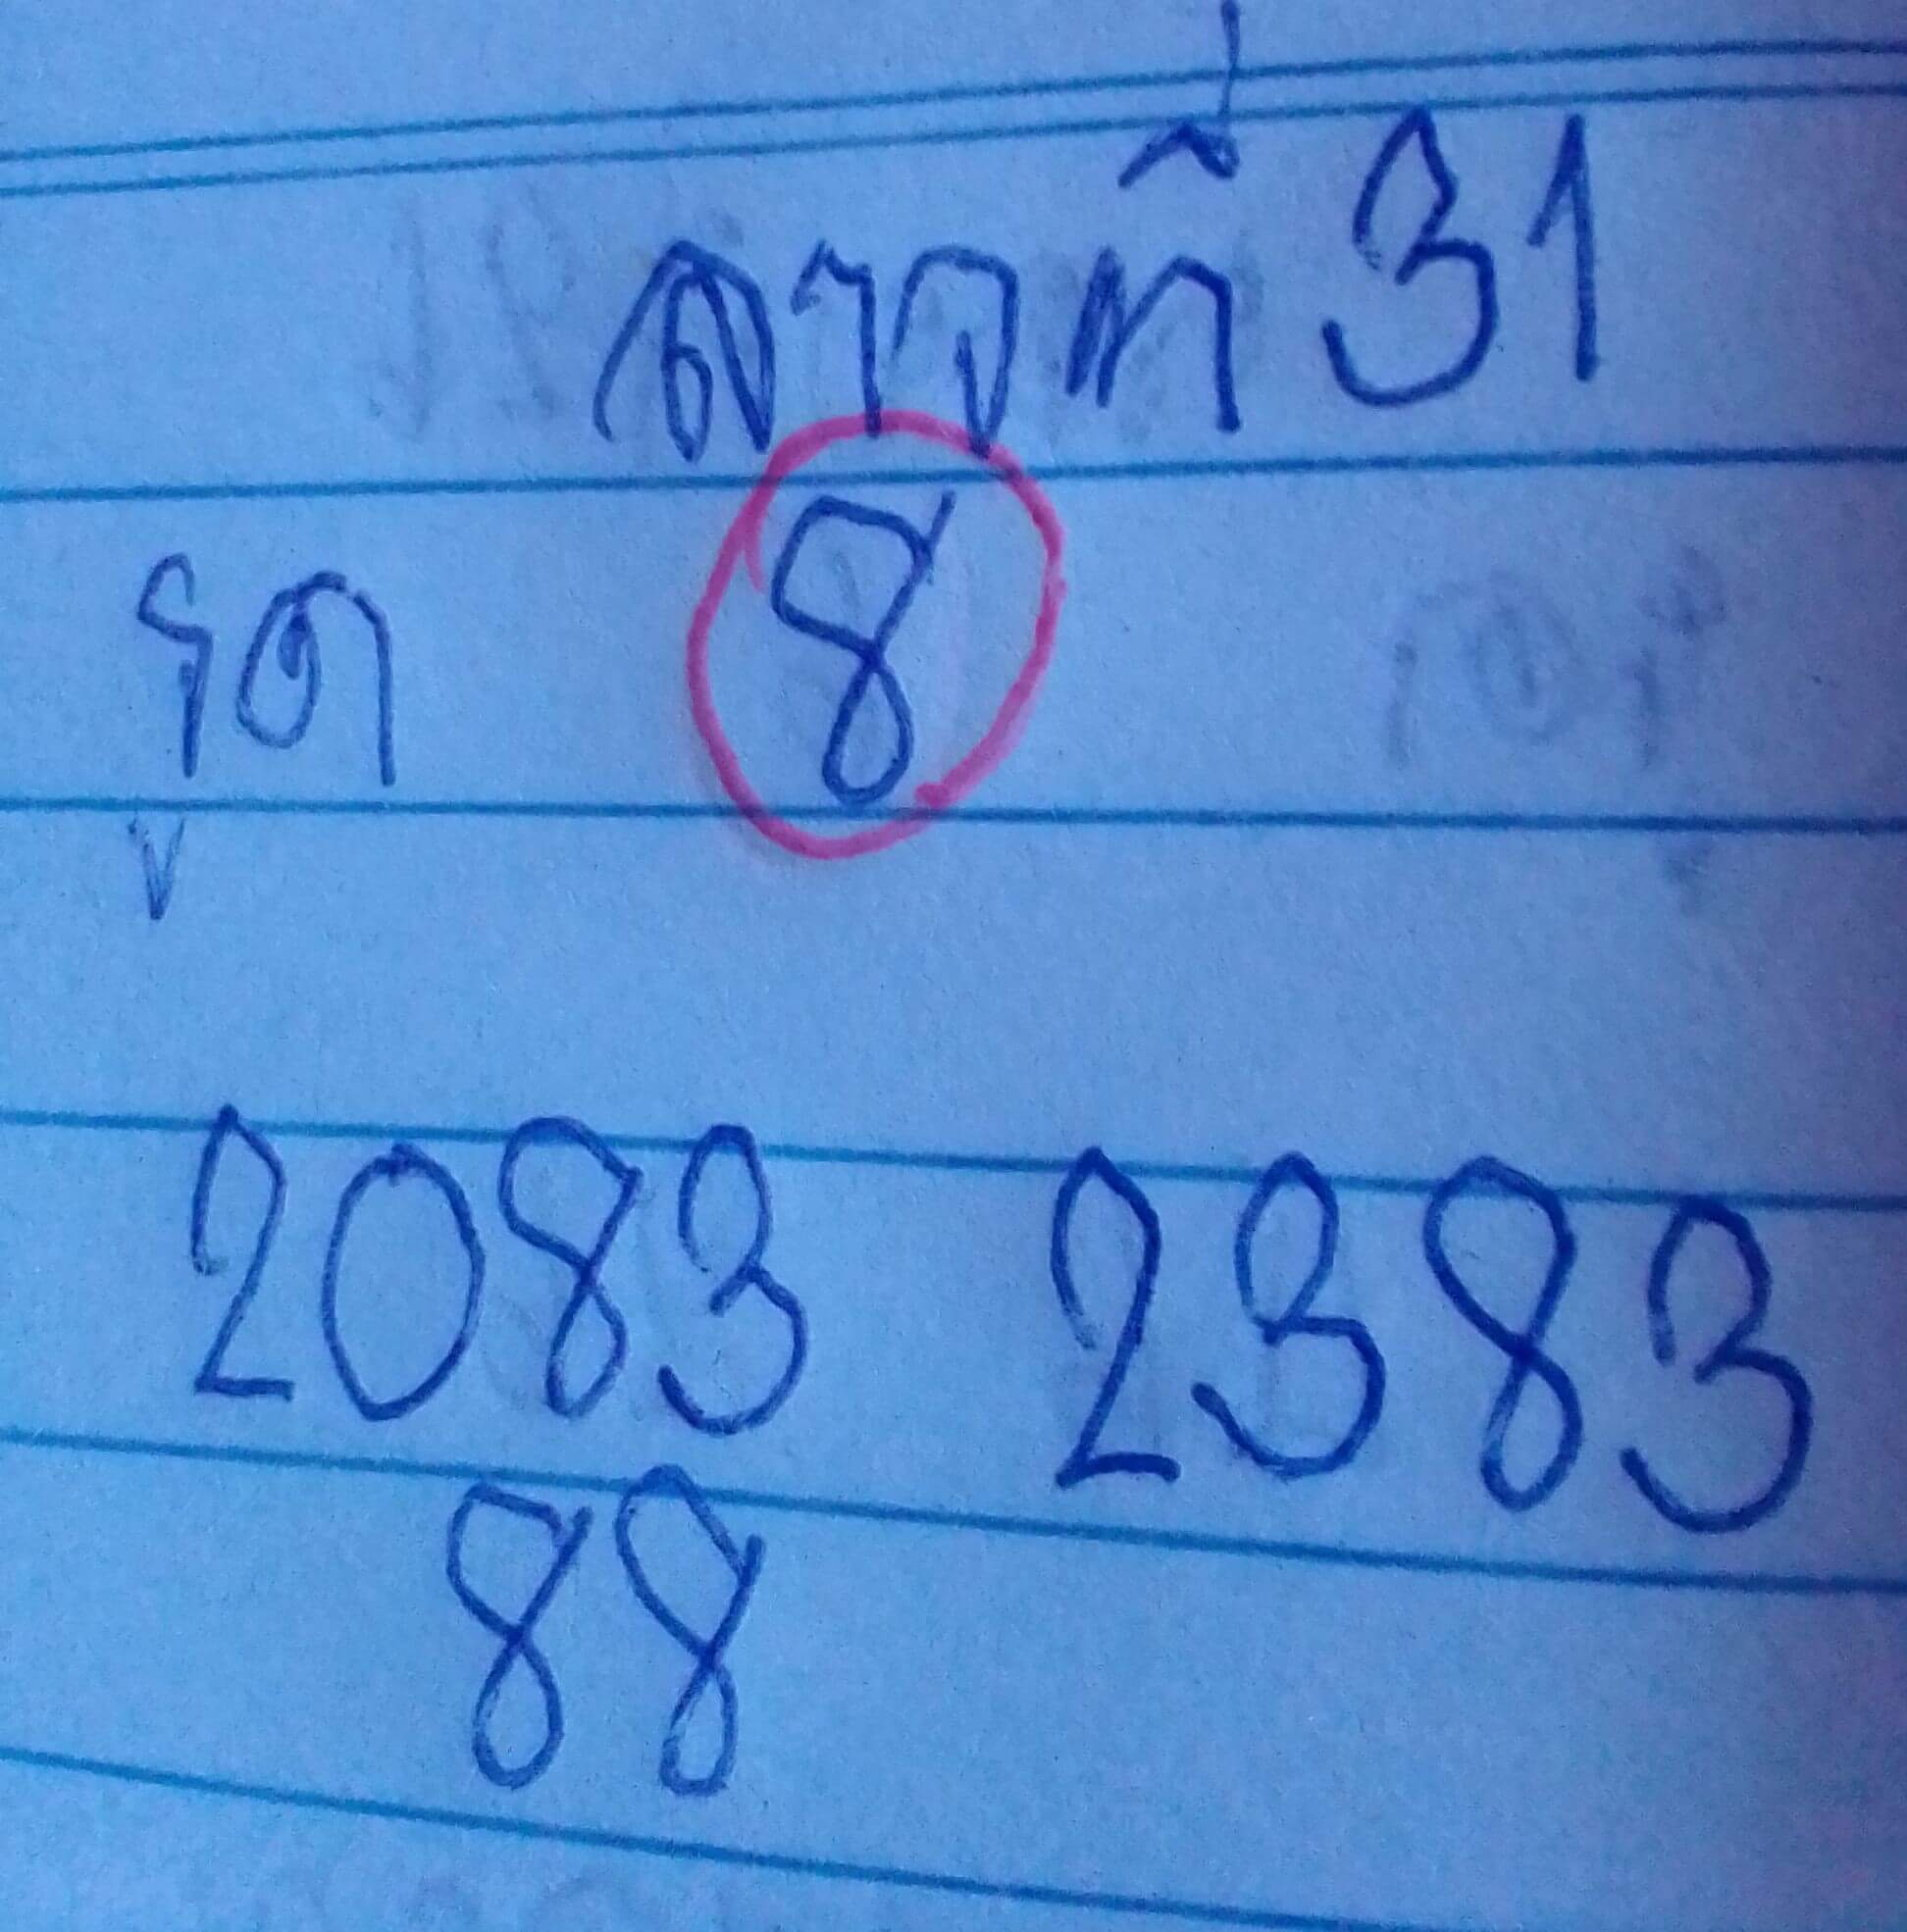 ลาวที่ 31
รูด 8
2083 2383
88